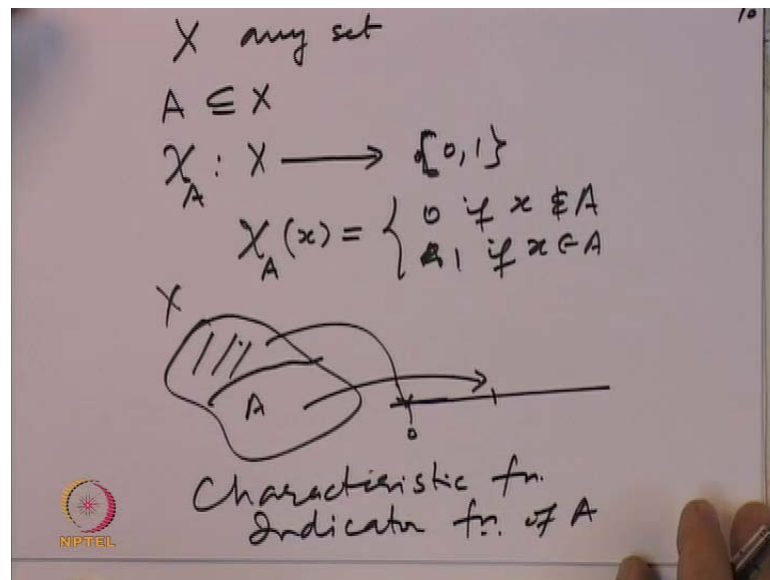 10
X any set
A ⊆ X
χ_A : X ⟶ {0,1}
χ_A (x) = { 0 if x ∉ A
1 if x ∈ A
X
A
0
Characteristic fn.
Indicator fn. of A
NPTEL